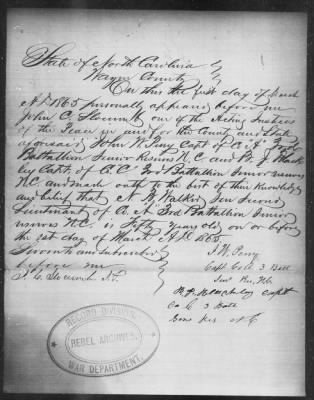 State of North Carolina
Wayne County
On this the first day of March
A.D. 1865 personally appeared before me
John C. Slocumb one of the Acting Justices
of the Peace in and for the County and State
aforesaid John W. Perry Capt of Co A 3rd
Battalion Junior Reserves N.C. and
Capt. of Co C 3rd Battalion Junior reserves
N.C. and made oath to the best of their Knowledge
and belief that A. W. Walker Second
Lieutenant of Co. A 3rd Battalion Junior
reserves N.C. is fifty years old on or before
the 1st day of March A.D. 1865.
Sworn to and Subscribed
before me
J. C. Slocumb J.P.
J. W. Perry
Capt Co A 3 Batt
Jun Res, N.C.
Capt
Co C 3 Batt
Res N C
RECORD DIVISION
REBEL ARCHIVES.
WAR DEPARTMENT.